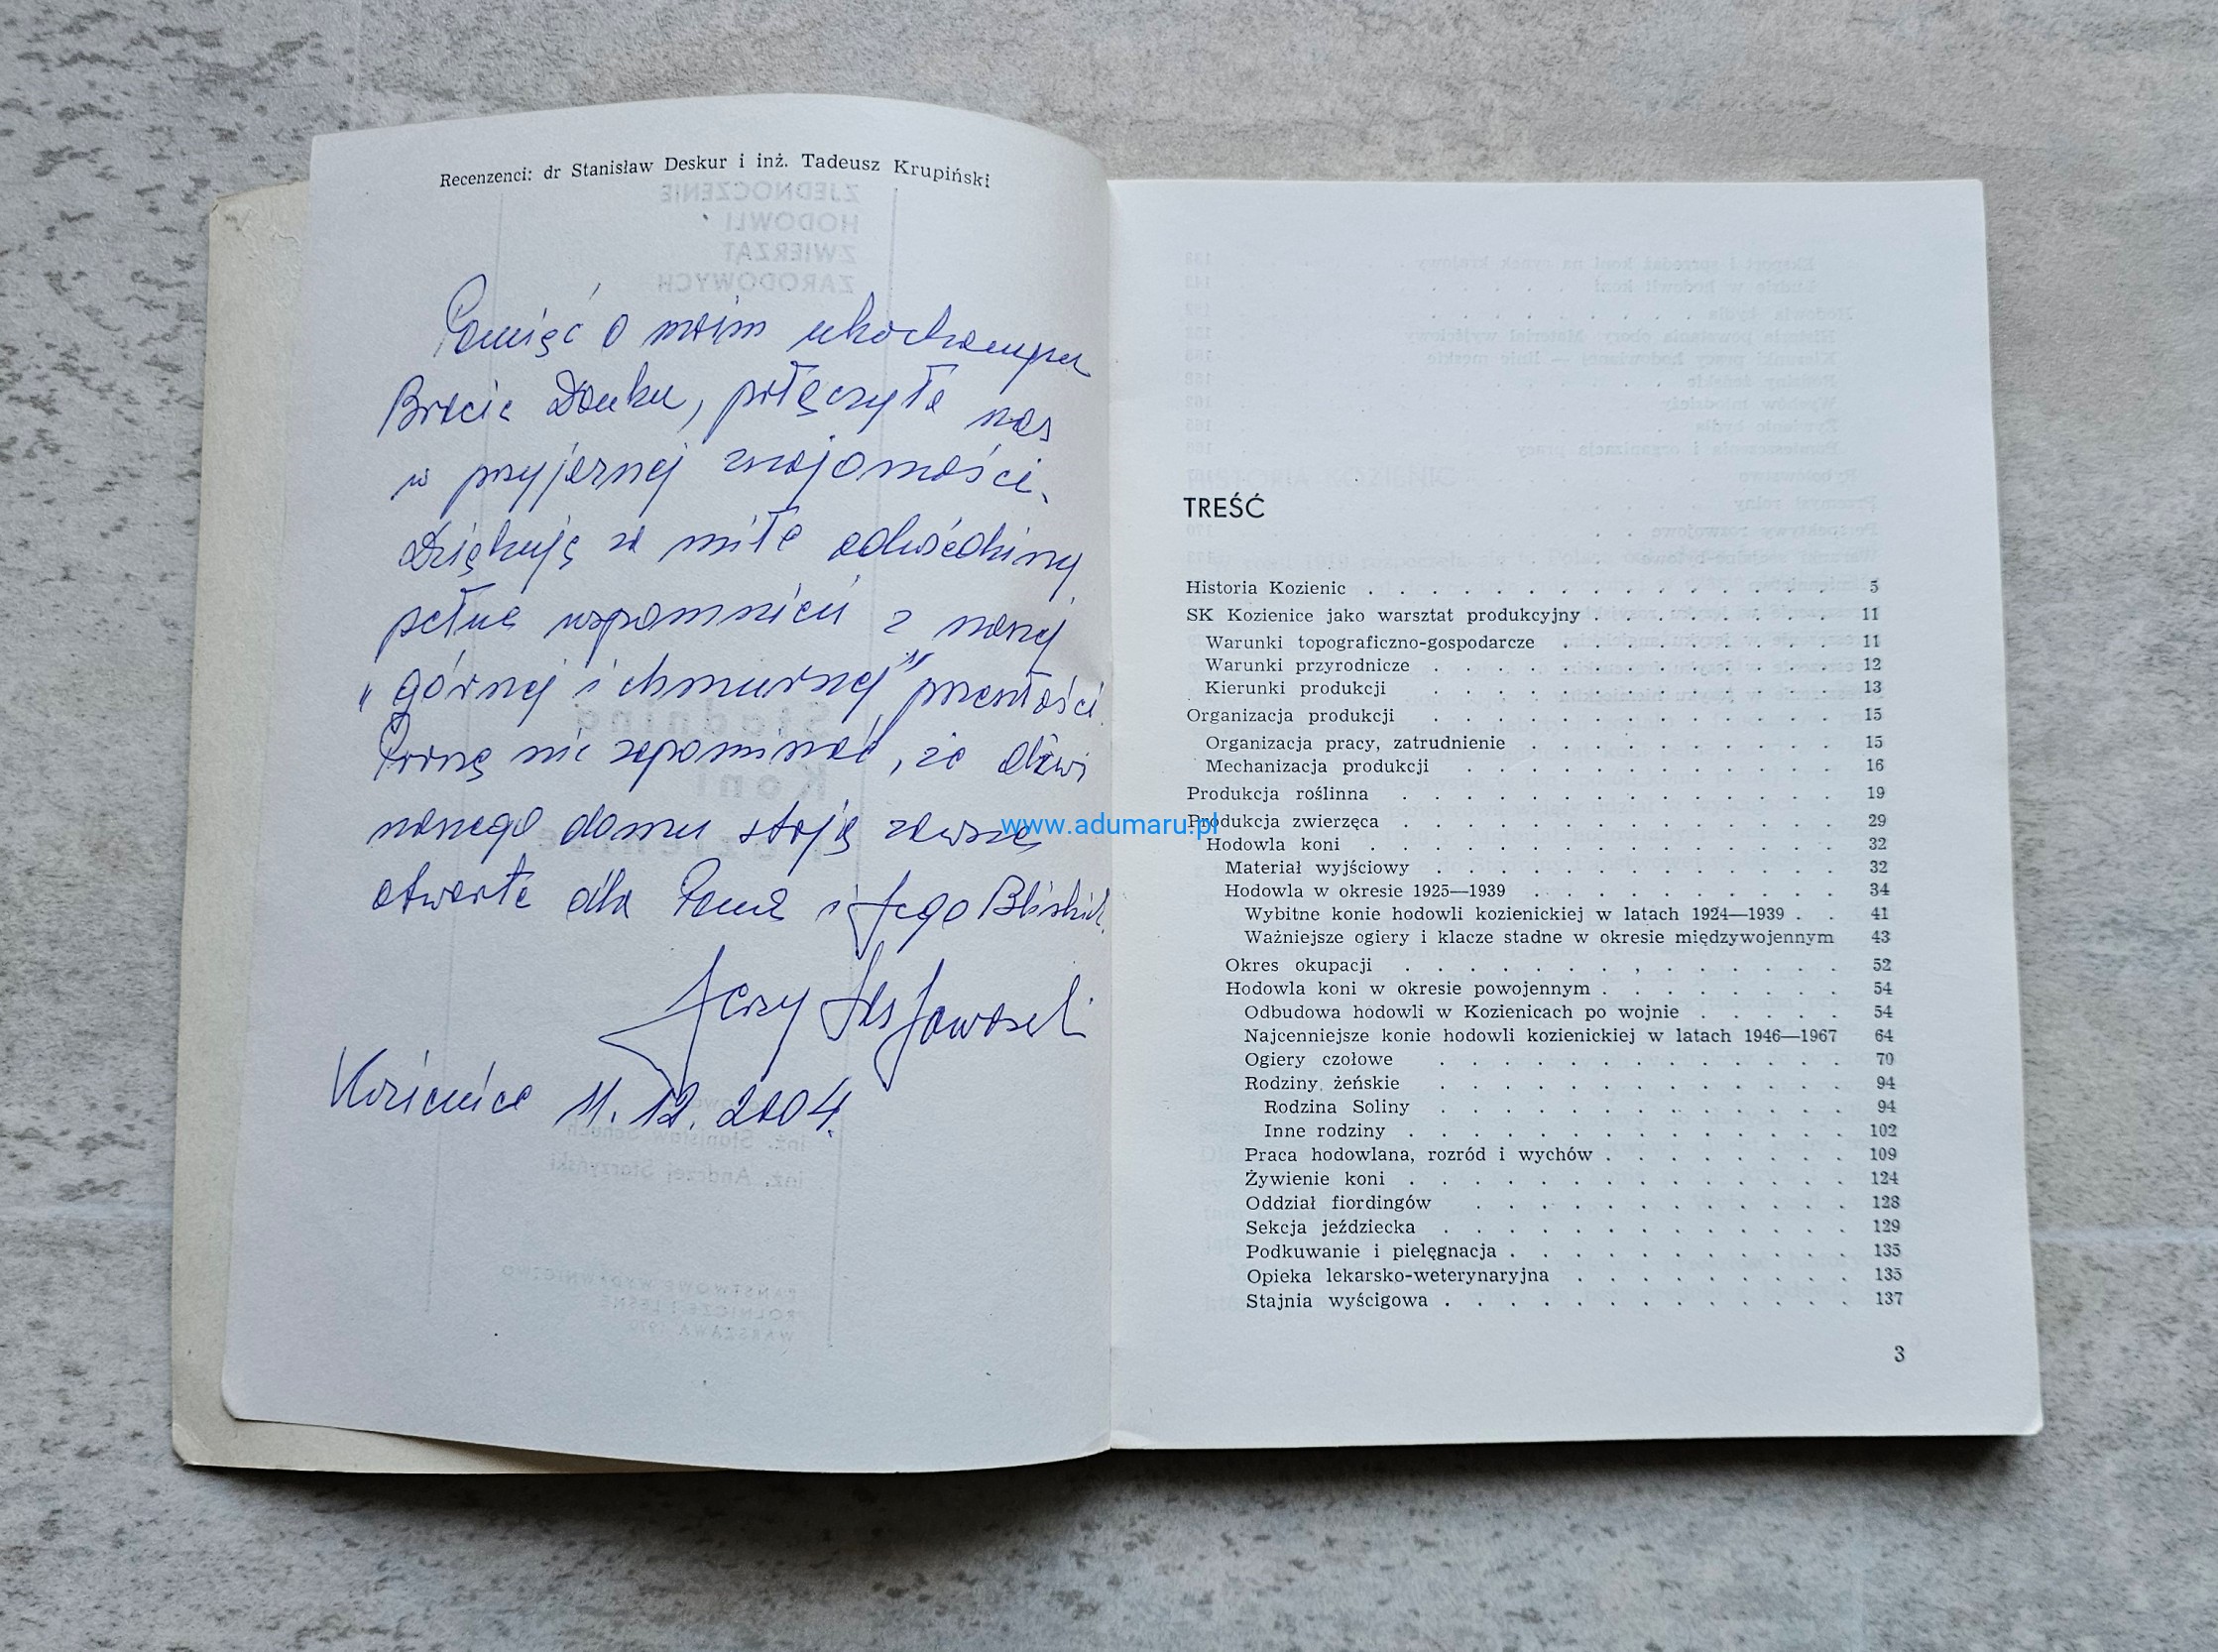 Recenzenci: dr Stanisław Deskur i inż. Tadeusz Krupiński
Pamięć o moim ukochanym
Bracie Danku, połączyła nas
w przyjaznej znajomości.
Dziękuję za miłe odwiedziny
pełne wspomnień z naszej
„górnej i chmurnej” przeszłości
Proszę nie zapominać, że drzwi
naszego domu stoją zawsze
otwarte dla Pana i Jego Bliskich.
Jerzy
Kozienice 11.12.2004.
www.adumaru.pl
TREŚĆ
Historia Kozienic . . . . . . . . . . . . . 5
SK Kozienice jako warsztat produkcyjny . . . . . . . 11
Warunki topograficzno-gospodarcze . . . . . . . . 11
Warunki przyrodnicze . . . . . . . . . . . 12
Kierunki produkcji . . . . . . . . . . . 13
Organizacja produkcji . . . . . . . . . . . 15
Organizacja pracy, zatrudnienie . . . . . . . . . 15
Mechanizacja produkcji . . . . . . . . . . 16
Produkcja roślinna . . . . . . . . . . . . 19
Produkcja zwierzęca . . . . . . . . . . . . 29
Hodowla koni . . . . . . . . . . . . . 32
Materiał wyjściowy . . . . . . . . . . . 32
Hodowla w okresie 1925—1939 . . . . . . . . 34
Wybitne konie hodowli kozienickiej w latach 1924—1939 . . 41
Ważniejsze ogiery i klacze stadne w okresie międzywojennym 43
Okres okupacji . . . . . . . . . . . . 52
Hodowla koni w okresie powojennym . . . . . . . 54
Odbudowa hodowli w Kozienicach po wojnie . . . . . 54
Najcenniejsze konie hodowli kozienickiej w latach 1946—1967 64
Ogiery czołowe . . . . . . . . . . . 70
Rodziny żeńskie . . . . . . . . . . . 94
Rodzina Soliny . . . . . . . . . . . 94
Inne rodziny . . . . . . . . . . . . 102
Praca hodowlana, rozród i wychów . . . . . . . 109
Żywienie koni . . . . . . . . . . . . 124
Oddział fiordingów . . . . . . . . . . 128
Sekcja jeździecka . . . . . . . . . . . 129
Podkuwanie i pielęgnacja . . . . . . . . . 135
Opieka lekarsko-weterynaryjna . . . . . . . . 135
Stajnia wyścigowa . . . . . . . . . . . 137
3